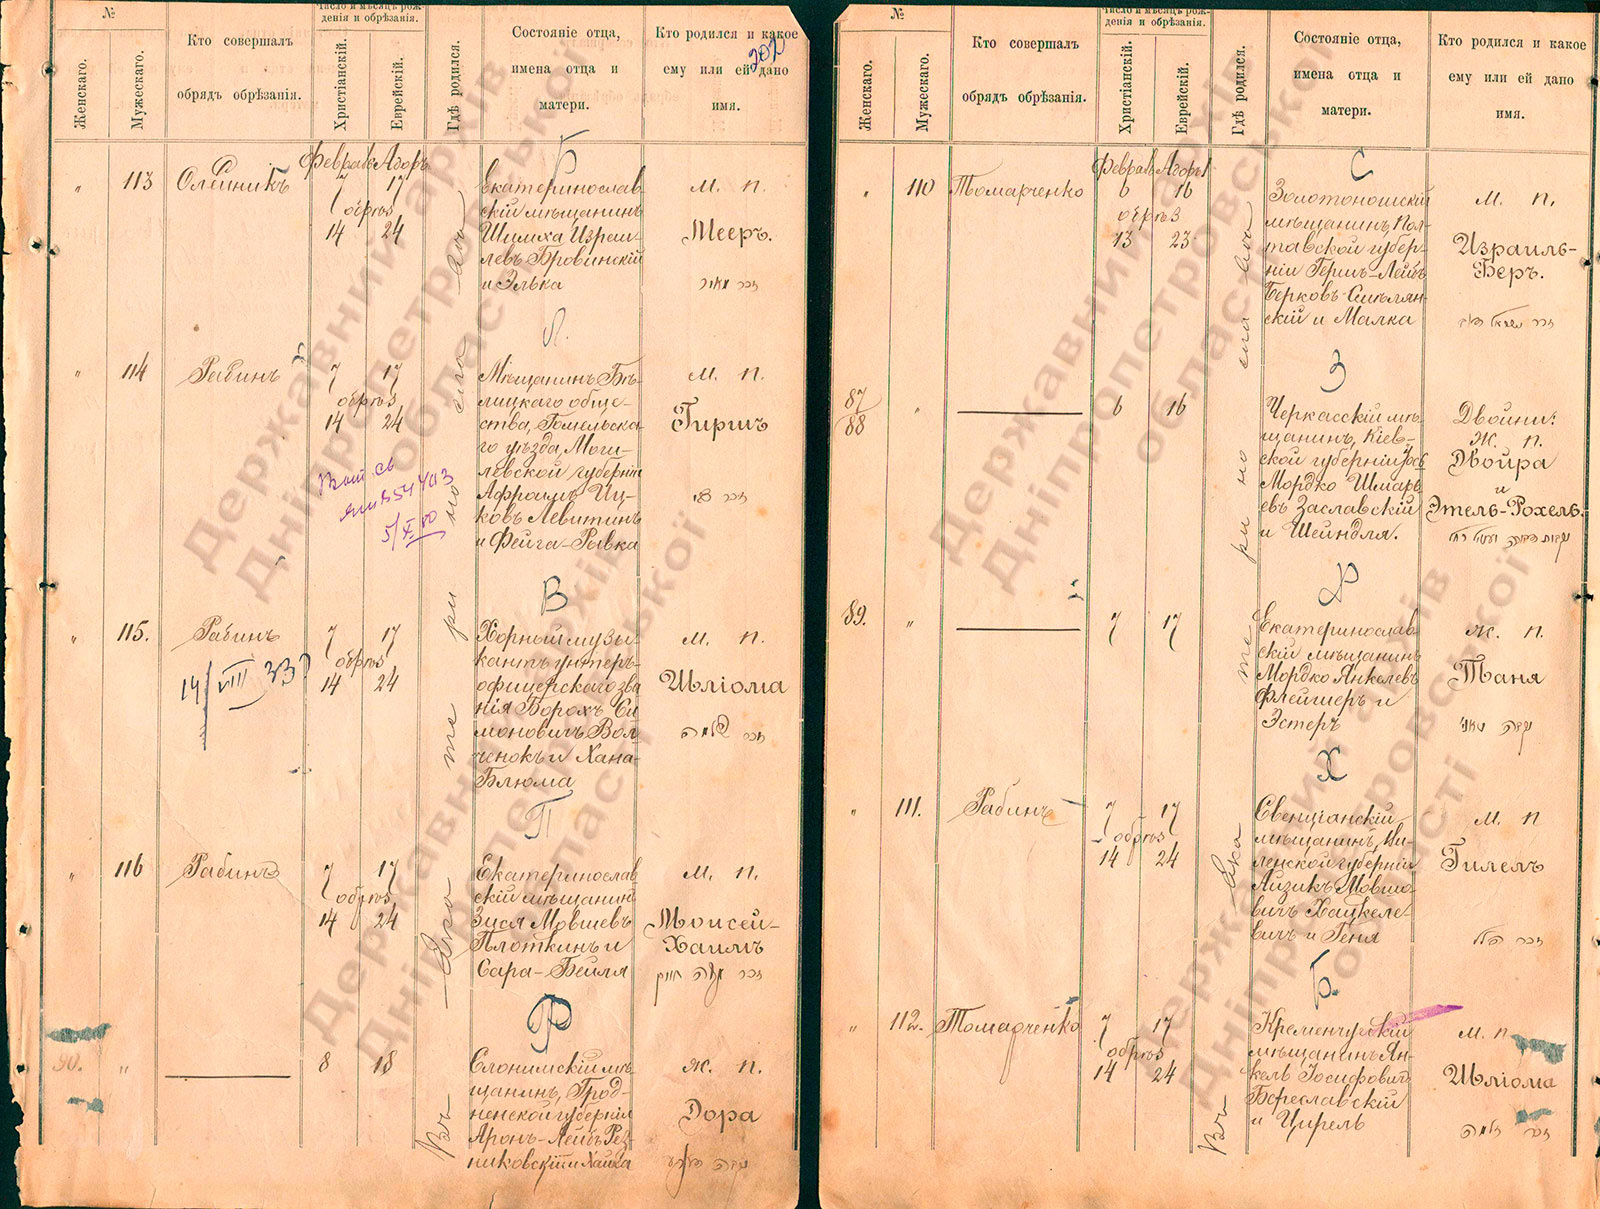 №
Женскаго.
Мужескаго.
Кто совершалъ
обрядъ обрѣзанія.
Число и мѣсяцъ рож-
денія и обрѣзанія.
Христіанскій.
Еврейскій.
Гдѣ родился.
Состояніе отца,
имена отца и
матери.
Кто родился и какое
ему или ей дано
имя.
202
Февраль Адоръ
Б
" 113 Олейникъ 7 17
обрѣз
14 24
Екатеринослав-
скій мѣщанинъ
Шимха Изреи-
левъ Бровинскій
и Элька
м. п.
Мееръ.
זכר מאיר
Л.
" 114 Рабинъ 7 17
обрѣз
14 24
Мѣщанинъ Бѣ-
лицкаго обще-
ства, Гомельска-
го уѣзда, Моги-
левской губерніи
Афраимъ Иц-
ковъ Левитинъ
и Фейга-Рывка
м. п.
Гиршъ
5/X
В
" 115. Рабинъ 7 17
обрѣз
14 24
14/VIII 33
Хорный музы-
кантъ унтеръ-
офицерскаго зва
нія Борохъ Си
моновичъ Вол-
ченокъ и Хана-
Блюма
м. п.
Шліома
זכר שלמה
П
" 116 Рабинъ 7 17
обрѣз
14 24
Екатеринослав
скій мѣщанинъ
Зуся Мовшевъ
Плоткинъ и
Сара-Бейля
м. п.
Моисей-
Хаимъ
זכר משה חיים
Р
90. " 8 18
Слонимскій мѣ-
щанинъ, Грод-
ненской губерніи
Аронъ-Лейбъ Рез-
никовскій и Хайка
ж. п.
Дора
Въ г. Екатеринославѣ
№
Женскаго.
Мужескаго.
Кто совершалъ
обрядъ обрѣзанія.
Число и мѣсяцъ рож-
денія и обрѣзанія.
Христіанскій.
Еврейскій.
Гдѣ родился.
Состояніе отца,
имена отца и
матери.
Кто родился и какое
ему или ей дано
имя.
Февраль Адоръ
С
" 110 Томарченко 6 16
обрѣз
13 23
Золотоношскій
мѣщанинъ Пол-
тавской губер-
ніи Гершъ-Лейбъ
Берковъ Смѣлян-
скій и Малка
м. п.
Израиль-
Беръ.
זכר ישראל בער
З
87
88 " 6 16
Черкасскій мѣ-
щанинъ, Кіев-
ской губерніи Іось
Мордко Шмарь-
евъ Заславскій
и Шейндля.
Двойни:
ж. п.
Двойра
и
Этель-Рохель.
Ф
89. " 7 17
Екатеринослав
скій мѣщанинъ
Мордко Янкелевъ
Флейшеръ и
Эстеръ
ж. п.
Таня
Х
" 111. Рабинъ 7 17
обрѣз
14 24
Свенціанскій
мѣщанинъ, Ви-
ленской губерніи
Айзикъ Мовшо-
вичъ Хацкеле-
вичъ и Геня
м. п
Гилель
זכר הלל
Б.
" 112. Томарченко 7 17
обрѣз
14 24
Кременчугскій
мѣщанинъ Ян-
кель Іосифовичъ
Береславскій
и Цирель
м. п
Шліома
זכר שלמה
Въ г. Екатеринославѣ
Державний архів
Дніпропетровської
області